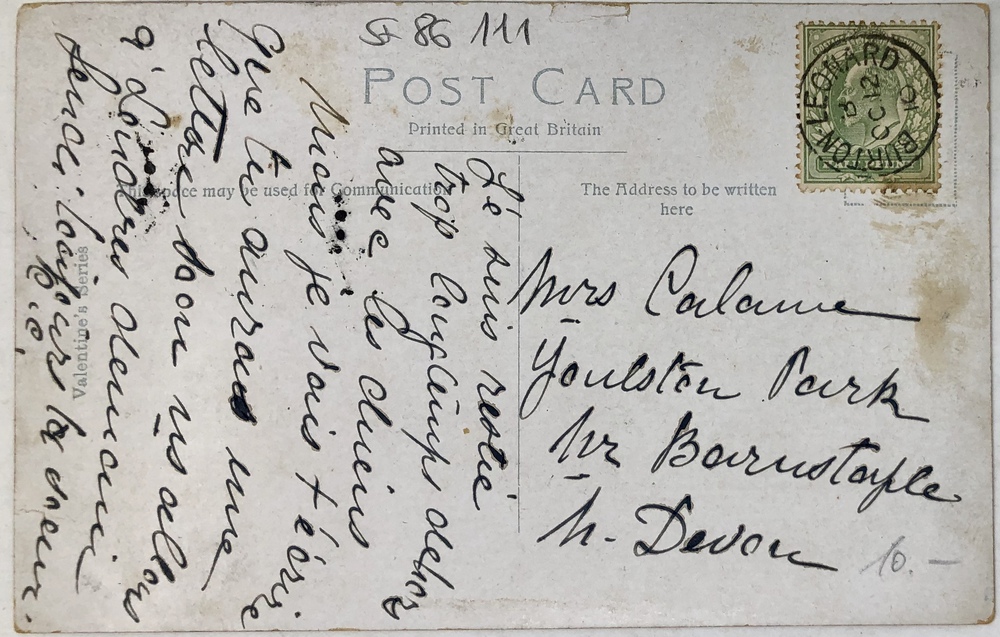 SG 86 111
POST CARD
Printed in Great Britain
This space may be used for Communication
The Address to be written
here
Valentine's Series
BURTON-LEONARD
OC 12
10
Je suis resté
trop longtemps dehors
avec les chiens
je vais t'écrire
que tu auras une
lettre bon ns allons
à Londres demain
lundi toujours le coeur
Mrs Calame
Youlston Park
Nr Barnstaple
N. Devon
10.-